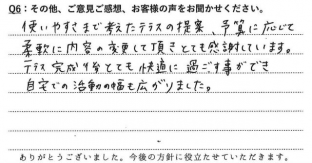 Q6：その他、ご意見ご感想、お客様の声をお聞かせください。
使いやすさまで考えたテラスの提案、予算に応じて
柔軟に内容の変更して頂きとても感謝しています。
テラス完成後とても快適に過ごす事ができ
自宅での活動の幅も広がりました。
ありがとうございました。今後の方針に役立たせていただきます。